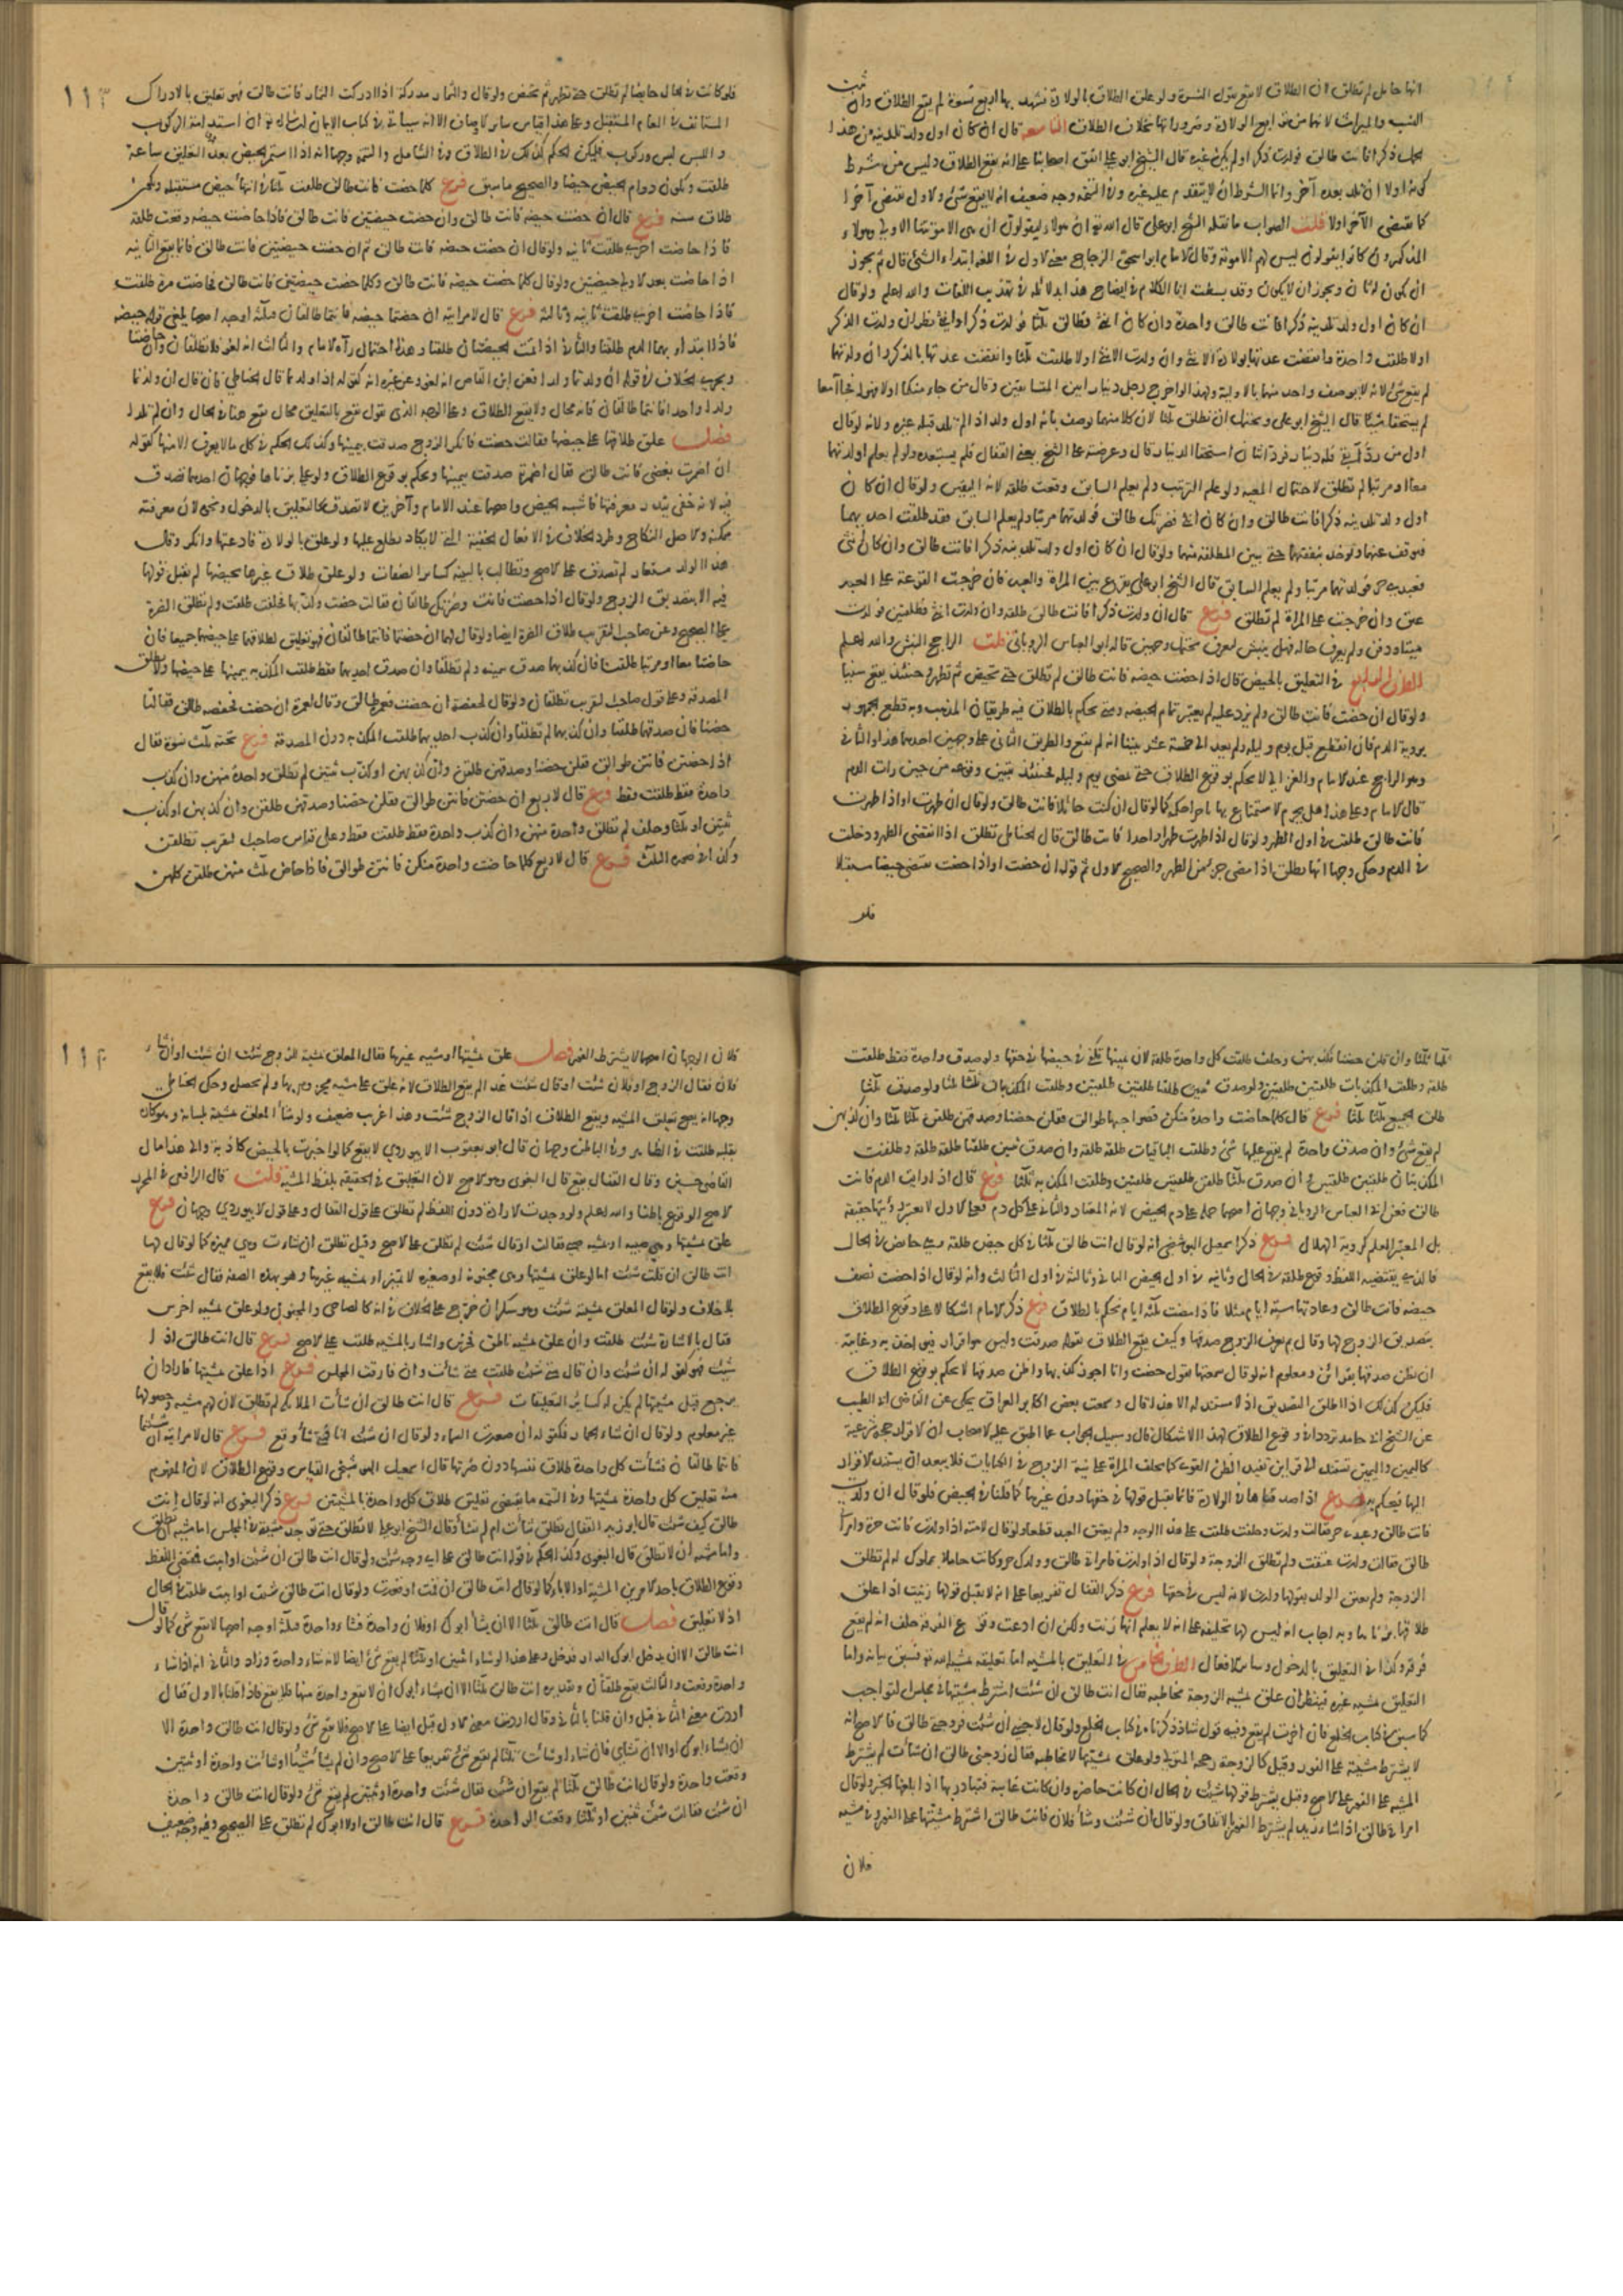 انها حامل لم تطلق لان الطلاق لا يقع بقول النسوة ولو علق الطلاق بالولادة فشهد بها اربع نسوة لم يقع الطلاق وان ثبت
النسب والميراث لانهما من توابع الولادة وضروراتها بخلاف الطلاق التاسعة قال ان كان اول ولد تلدينه من هذا
الحمل ذكرا فانت طالق فولدت ذكرا ولم يكن غيره قال الشيخ ابو علي اتفق اصحابنا على انه يقع الطلاق وليس من شرط
كونه اولا ان تلد بعده آخر وانما الشرط ان لا يتقدم عليه غيره وفي التتمة وجه ضعيف انه لا يقع شئ والاول يقتضي آخرا
كما يقتضي الآخر اولا قلت الصواب ما نقله الشيخ ابو علي قال الله تعالى ان هؤلاء ليقولون ان هي الا موتتنا الاولى وهؤلاء
المذكورون كانوا يقولون ليس لهم الا موتة وقال الامام ابو اسحق الزجاج معنى الاول في اللغة ابتداء الشئ قال ثم يجوز
ان يكون له ثان ويجوز ان لا يكون وقد بسطت انا الكلام في ايضاح هذا بدلائله في تهذيب اللغات والله اعلم ولو قال
ان كان اول ولد تلدينه ذكرا فانت طالق واحدة وان كان انثى فطالق ثلثا فولدت ذكرا وانثى نظر ان ولدت الذكر
اولا طلقت واحدة وانقضت عدتها بولادة الانثى وان ولدت الانثى اولا طلقت ثلثا وانقضت عدتها بالذكر وان ولدتهما
لم يقع شئ لانه لا يوصف واحد منهما بالاولية ولهذا لو اخرج رجل دينارا بين المتسابقين وقال من جاء منكما اولا فهو له فجاآ معا
لم يستحقا شيئا قال الشيخ ابو علي ويحتمل ان تطلق ثلثا لان كلا منهما يوصف بانه اول ولد اذا لم تلد قبله غيره ولانه لو قال
اول من رد آبقي فله دينار فرده اثنان استحقا الدينار قال وعرضته على الشيخ يعني القفال فلم يستبعده ولو لم يعلم اولدتهما
معا او مرتبا لم تطلق لاحتمال المعية ولو علم الترتيب ولم يعلم السابق وقعت طلقة لانه اليقين ولو قال ان كان
اول ولد تلدينه ذكرا فانت طالق وان كان انثى فضرتك طالق فولدتهما مرتبا ولم يعلم السابق فقد طلقت احديهما
فيوقف عنهما ويؤخذ بنفقتهما حتى يبين المطلقة منهما ولو قال ان كان اول ولد تلدينه ذكرا فانت طالق وان كان انثى
فعبدي حر فولدتهما مرتبا ولم يعلم السابق قال الشيخ ابو علي يقرع بين المراة والعبد فان خرجت القرعة على العبد
عتق وان خرجت على المراة لم تطلق فرع قال ان ولدت ذكرا فانت طالق طلقة وان ولدت انثى فطلقتين فولدت
ميتا ودفن ولم يعرف حاله فهل ينبش ليعرف يحتمل وجهين قاله ابو العباس الروياني قلت الراجح النبش والله اعلم
الطرف الرابع في التعليق بالحيض قال اذا حضت حيضة فانت طالق لم تطلق حتى تحيض ثم تطهر وحينئذ يقع سنيا
ولو قال ان حضت فانت طالق ولم يزد عليه لم يعتبر تمام الحيضة ومتى يحكم بالطلاق فيه طريقان المذهب وبه قطع الجمهور
برؤية الدم فان انقطع قبل يوم وليلة ولم يعد الى خمسة عشر بينا انه لم يقع والطريق الثاني على وجهين احدهما هذا والثاني
وهو الراجح عند الامام والغزالي لا يحكم بوقوع الطلاق حتى يمضي يوم وليلة فحينئذ نتبين وقوعه من حين رات الدم
قال الامام وعلى هذا هل يحرم الاستمتاع بها ناجزا حكمه كما لو قال ان كنت حائلا فانت طالق ولو قال ان طهرت او اذا طهرت
فانت طالق طلقت في اول الطهر ولو قال اذا طهرت طهرا واحدا فانت طالق قال الحناطي تطلق اذا انقضى الطهر ودخلت
في الدم وحكى وجها انها تطلق اذا مضى جزء من الطهر والصحيح الاول ثم قوله ان حضت او اذا حضت يقتضي حيضا مستقبلا
فلو
١١٣
فلو كانت في الحال حائضا لم تطلق حتى تطهر ثم تحيض ولو قال والثمار مدركة اذا ادركت الثمار فانت طالق فهو تعليق بالادراك
المستانف في العام المستقبل وعلى هذا قياس سائر الاوصاف الا انه سياتي في كتاب الايمان ان شاء الله تعالى ان استدامة الركوب
واللبس لبس وركوب فليكن الحكم كذلك في الطلاق وفي الشامل والتتمة وجها انه اذا استمر الحيض بعد التعليق ساعة
طلقت ويكون دوام الحيض حيضا والصحيح ما سبق فرع كلما حضت فانت طالق طلقت ثلثا في انتهاء حيض مستقبلة ويكون
طلاق سنة فرع قال ان حضت حيضة فانت طالق وان حضت حيضتين فانت طالق فاذا حاضت حيضة وقعت طلقة
فاذا حاضت اخرى طلقت ثانية ولو قال ان حضت حيضة فانت طالق ثم ان حضت حيضتين فانت طالق فانما يقع الثانية
اذا حاضت بعد الاولى حيضتين ولو قال كلما حضت حيضة فانت طالق وكلما حضت حيضتين فانت طالق فحاضت مرة طلقت
فاذا حاضت اخرى طلقت ثانية وثالثة فرع قال لامراتيه ان حضتما حيضة فانتما طالقان فثلثة اوجه احدها يلغى قوله حيضة
فاذا ابتدأ بهما الدم طلقتا والثاني اذا تمت الحيضتان طلقتا وهذا احتمال رآه الامام والثالث انه لغو فلا تطلقان وان حاضتا
ويجري الخلاف في قوله ان ولدتما ولدا فعن ابن القاص انه لغو وعن غيره انه كقوله اذا ولدتما قال الحناطي فان قال ان ولدتما
ولدا واحدا فانتما طالقان فانه محال ولا يقع الطلاق وعلى الوجه الذي نقول يقع بالتعليق بمحال يقع هنا في الحال وان لم تلدا
فصل علق طلاقها على حيضها فقالت حضت فانكر الزوج صدقت بيمينها وكذلك الحكم في كل ما لا يعرف الا منها كقوله
ان اضمرت بغضي فانت طالق فقال اضمرته صدقت بيمينها ويحكم بوقوع الطلاق ولو علق بزناها فوجهان احدهما تصدق
فيه لانه خفي تتعذر معرفته فاشبه الحيض واصحهما عند الامام وآخرين لا تصدق كالتعليق بالدخول ونحوه لان معرفته
ممكنة والاصل النكاح وطرد الخلاف في الافعال الخفية التي لا يكاد يطلع عليها ولو علق بالولادة فادعتها وانكر وقال
هذا الولد مستعار لم تصدق على الاصح وتطالب بالبينة كسائر الصفات ولو علق طلاق غيرها بحيضها لم يقبل قولها
فيه الا بتصديق الزوج ولو قال اذا حضت فانت وضرتك طالقان فقالت حضت وكذبها فحلفت طلقت ولم تطلق الضرة
على الصحيح وعن صاحب التقريب طلاق الضرة ايضا ولو قال لهما ان حضتما فانتما طالقان فهو تعليق لطلاقهما على حيضهما جميعا فان
حاضتا معا او مرتبا طلقتا فان كذبهما صدق بيمينه ولم تطلقا وان صدق احديهما فقط طلقت المكذبة بيمينها على حيضها ولا تطلق
المصدقة وعلى قول صاحب التقريب تطلقان ولو قال لحفصة ان حضت فعمرة طالق وقال لعمرة ان حضت فحفصة طالق فقالتا
حضنا فان صدقهما طلقتا وان كذبهما لم تطلقا وان كذب احديهما طلقت المكذبة دون المصدقة فرع تحته ثلث نسوة فقال
اذا حضتن فانتن طوالق فقلن حضنا وصدقهن طلقن وان كذبهن او كذب ثنتين لم تطلق واحدة منهن وان كذب
واحدة فقط طلقت فقط فرع قال لاربع ان حضتن فانتن طوالق فقلن حضنا وصدقهن طلقن وان كذبهن او كذب
ثنتين او ثلثا وحلف لم تطلق واحدة منهن وان كذب واحدة فقط طلقت فقط وعلى قياس صاحب التقريب تطلقن
وكذا في صورة الثلث فرع قال لاربع كلما حاضت واحدة منكن فانتن طوالق فاذا حاض ثلث منهن طلقن كلهن
ثلثا ثلثا وان قلن حضنا فكذبهن وحلف طلقت كل واحدة طلقة لان يمينها تكفي في حيضها في حقها ولو صدق واحدة فقط طلقت
طلقة وطلقت المكذبات طلقتين طلقتين ولو صدق ثنتين طلقتا طلقتين طلقتين وطلقت المكذبتان ثلثا ثلثا ولو صدق ثلثا
طلق الجميع ثلثا ثلثا فرع قال كلما حاضت واحدة منكن فصواحبها طوالق فقلن حضنا وصدقهن طلقن ثلثا ثلثا وان كذبهن
لم يقع شئ وان صدق واحدة لم يقع عليها شئ وطلقت الباقيات طلقة طلقة وان صدق ثنتين طلقتا طلقة طلقة وطلقت
المكذبتان طلقتين طلقتين وان صدق ثلثا طلقن طلقتين طلقتين وطلقت المكذبة ثلثا فرع قال اذا رايت الدم فانت
طالق فعن ابي العباس الروياني وجهان اصحهما حمله على دم الحيض لانه المعتاد والثاني على كل دم فعلى الاول لا يعتبر رؤيتها حقيقة
بل المعتبر العلم كرؤية الهلال فرع ذكر اسمعيل البوشنجي انه لو قال انت طالق ثلثا في كل حيض طلقة وهي حائض في الحال
فالذي يقتضيه اللفظ وقوع طلقة في الحال وثانية في اول الحيض الثاني وثالثة في اول الثالث وانه لو قال اذا حضت نصف
حيضة فانت طالق وعادتها ستة ايام مثلا فاذا مضت ثلثة ايام نحكم بالطلاق فرع ذكر الامام اشكالا على وقوع الطلاق
بتصديق الزوج لها وقال بم يعرف الزوج صدقها وكيف يقع الطلاق بقوله صدقت وليس هو اقرار فيؤاخذ به وغايته
ان يظن صدقها بقرائن ومعلوم انه لو قال سمعتها تقول حضت وانا اجوز كذبها واظن صدقها لا يحكم بوقوع الطلاق
فليكن كذلك اذا اطلق التصديق اذ لا مستند له الا هذا قال وسمعت بعض اكابر العراق يحكي عن القاضي ابي الطيب
عن الشيخ ابي حامد ترددا في وقوع الطلاق لهذا الاشكال قال وسبيل الجواب عما اطبق عليه الاصحاب ان الاقرار حجة شرعية
كاليمين واليمين تستند الى قرائن تفيد الظن القوي كما يحلف المراة على نية الزوج في الكنايات فلا يبعد ان يستند الاقرار
اليها فيحكم به فرع اذا صدقناها في الولادة فانما يقبل قولها في حقها دون غيرها كما قلنا في الحيض فلو قال ان ولدت
فانت طالق وعبدي حر فقالت ولدت وحلفت طلقت على هذا الوجه ولم يعتق العبد قطعا ولو قال لامته اذا ولدت فانت حرة وامراتي
طالق فقالت ولدت عتقت ولم تطلق الزوجة ولو قال اذا ولدت فامراتي طالق وولدك حر وكانت حاملا بمملوك له لم تطلق
الزوجة ولم يعتق الولد بقولها ولدت لانه ليس في حقها فرع ذكر القفال تفريعا على انه لا يقبل قولها زنيت اذا علق
طلاقها بزناها وبه اجاب انه ليس لها تحليفه على انه لا يعلم انها زنت ولكن ان ادعت وقوع الفرقة حلف انه لم تقع
فرقة وكذا في التعليق بالدخول وسائر الافعال الطرف الخامس في التعليق بالمشية اما تعليقه بمشية الله تعالى فسبق بيانه واما
التعليق بمشية غيره فينظر ان علق بمشية الزوجة مخاطبة فقال انت طالق ان شئت اشترط مشيتها في مجلس التواجب
كما سبق في كتاب الخلع فان اخرت لم يقع وفيه قول شاذ ذكرناه في كتاب الخلع ولو قال لاجنبي ان شئت فزوجتي طالق فالاصح انه
لا يشترط مشيته على الفور وقيل كالزوجة رجحه المتولي ولو علق بمشيتها لا مخاطبة فقال زوجتي طالق ان شاءت لم يشترط
المشية على الفور على الاصح وقيل يشترط قولها شئت في الحال ان كانت حاضرة وان كانت غائبة فتبادر بها اذا بلغها الخبر ولو قال
امراتي طالق اذا شاء زيد لم يشترط الفور بالاتفاق ولو قال ان شئت وشاء فلان فانت طالق اشترط مشيتها على الفور وفي مشية
فلان
١١٤
فلان الوجهان اصحهما لا يشترط الفور فصل علق بمشيتها او مشية غيرها فقال المعلق بمشيته الزوج شئت ان شئت او ان شاء
فلان فقال الزوج او فلان شئت او قال شئت غدا لم يقع الطلاق لانه علق على مشية مجزومة بها ولم تحصل وحكى الحناطي
وجها انه يصح تعليق المشية ويقع الطلاق اذا قال الزوج شئت وهذا اغرب ضعيف ولو شاء المعلق بمشيته بلسانه وهو كاره
بقلبه طلقت في الظاهر وفي الباطن وجهان قال ابو يعقوب الابيوردي لا يقع كما لو اخبرت بالحيض كاذبة والى هذا مال
القاضي حسين وقال القفال يقع قال البغوي وهو الاصح لان التعليق في الحقيقة بلفظ المشية قلت قال الرافعي في المحرر
الاصح الوقوع باطنا والله اعلم ولو وجدت الارادة دون اللفظ لم تطلق على قول القفال وعلى قول الابيوردي وجهان فرع
علق بمشيتها وهي صبية او بمشية صبي فقالت او قال شئت لم تطلق على الاصح وقيل تطلق ان شاءت وهي مميزة كما لو قال لها
انت طالق ان قلت شئت اما لو علق بمشيتها وهي مجنونة او صغيرة لا تميز او بمشية غيرها وهو بهذه الصفة فقال شئت فلا يقع
بلا خلاف ولو قال المعلق بمشيته شئت وهو سكران خرج على الخلاف في انه كالصاحي والمجنون ولو علق بمشية اخرس
فقال بالاشارة شئت طلقت وان علق بمشية ناطق فخرس واشار بالمشية طلقت على الاصح فرع قال انت طالق اذا
شئت فهو كقوله ان شئت وان قال متى شئت طلقت متى شاءت وان فارقت المجلس فرع اذا علق بمشيتها فاراد ان
يرجع قبل مشيتها لم يكن له كسائر التعليقات فرع قال انت طالق ان شاءت الملائكة لم تطلق لان لهم مشية وحصولها
غير معلوم ولو قال ان شاء الحمار فكقوله ان صعدت السماء ولو قال ان شئت انا فمتى شاء وقع فرع قال لامراتيه ان شئتما
فانتما طالقان فشاءت كل واحدة طلاق نفسها دون ضرتها قال اسمعيل البوشنجي القياس وقوع الطلاق لان المفهوم
منه تعليق كل واحدة بمشيتها وفي التتمة ما يقتضي تعليق طلاق كل واحدة بالمشيتين فرع ذكر البغوي انه لو قال انت
طالق كيف شئت قال ابو زيد والقفال تطلق شاءت ام لم تشأ وقال الشيخ ابو علي لا تطلق حتى توجد مشية في المجلس اما مشية ان تطلق
واما مشية ان لا تطلق قال البغوي وكذا الحكم في قوله انت طالق على اي وجه شئت ولو قال انت طالق ان شئت او ابيت فمقتضى اللفظ
وقوع الطلاق باحد الامرين المشية او الاباء كما لو قال انت طالق ان قمت او قعدت ولو قال انت طالق شئت او ابيت طلقت في الحال
اذ لا تعليق فصل قال انت طالق ثلثا الا ان يشاء ابوك او فلان واحدة فشاء واحدة فثلثة اوجه اصحها لا يقع شئ كما لو قال
انت طالق الا ان يدخل ابوك الدار فدخل وعلى هذا لو شاء اثنتين او ثلثا لم يقع شئ ايضا لانه شاء واحدة وزاد والثاني انه اذا شاء
واحدة وقعت والثالث يقع طلقتان وتقديره انت طالق ثلثا الا ان يشاء ابوك ان لا يقع واحدة منها فلا يقع فاذا قلنا بالاول فقال
اردت معنى الثاني قبل وان قلنا بالثاني وقال اردت معنى الاول قبل ايضا على الاصح فلا يقع شئ ولو قال انت طالق واحدة الا
ان يشاء ابوك او الا ان تشائي فان شاء او شاءت ثلثا لم يقع شئ تفريعا على الاصح وان لم يشأ شيئا او شاءت واحدة او ثنتين
وقعت واحدة ولو قال انت طالق ثلثا ان شئت فقالت شئت واحدة او ثنتين لم يقع شئ ولو قال انت طالق واحدة
ان شئت فقالت شئت ثنتين او ثلثا وقعت الواحدة فرع قال انت طالق لولا ابوك لم تطلق على الصحيح وفيه وجه ضعيف